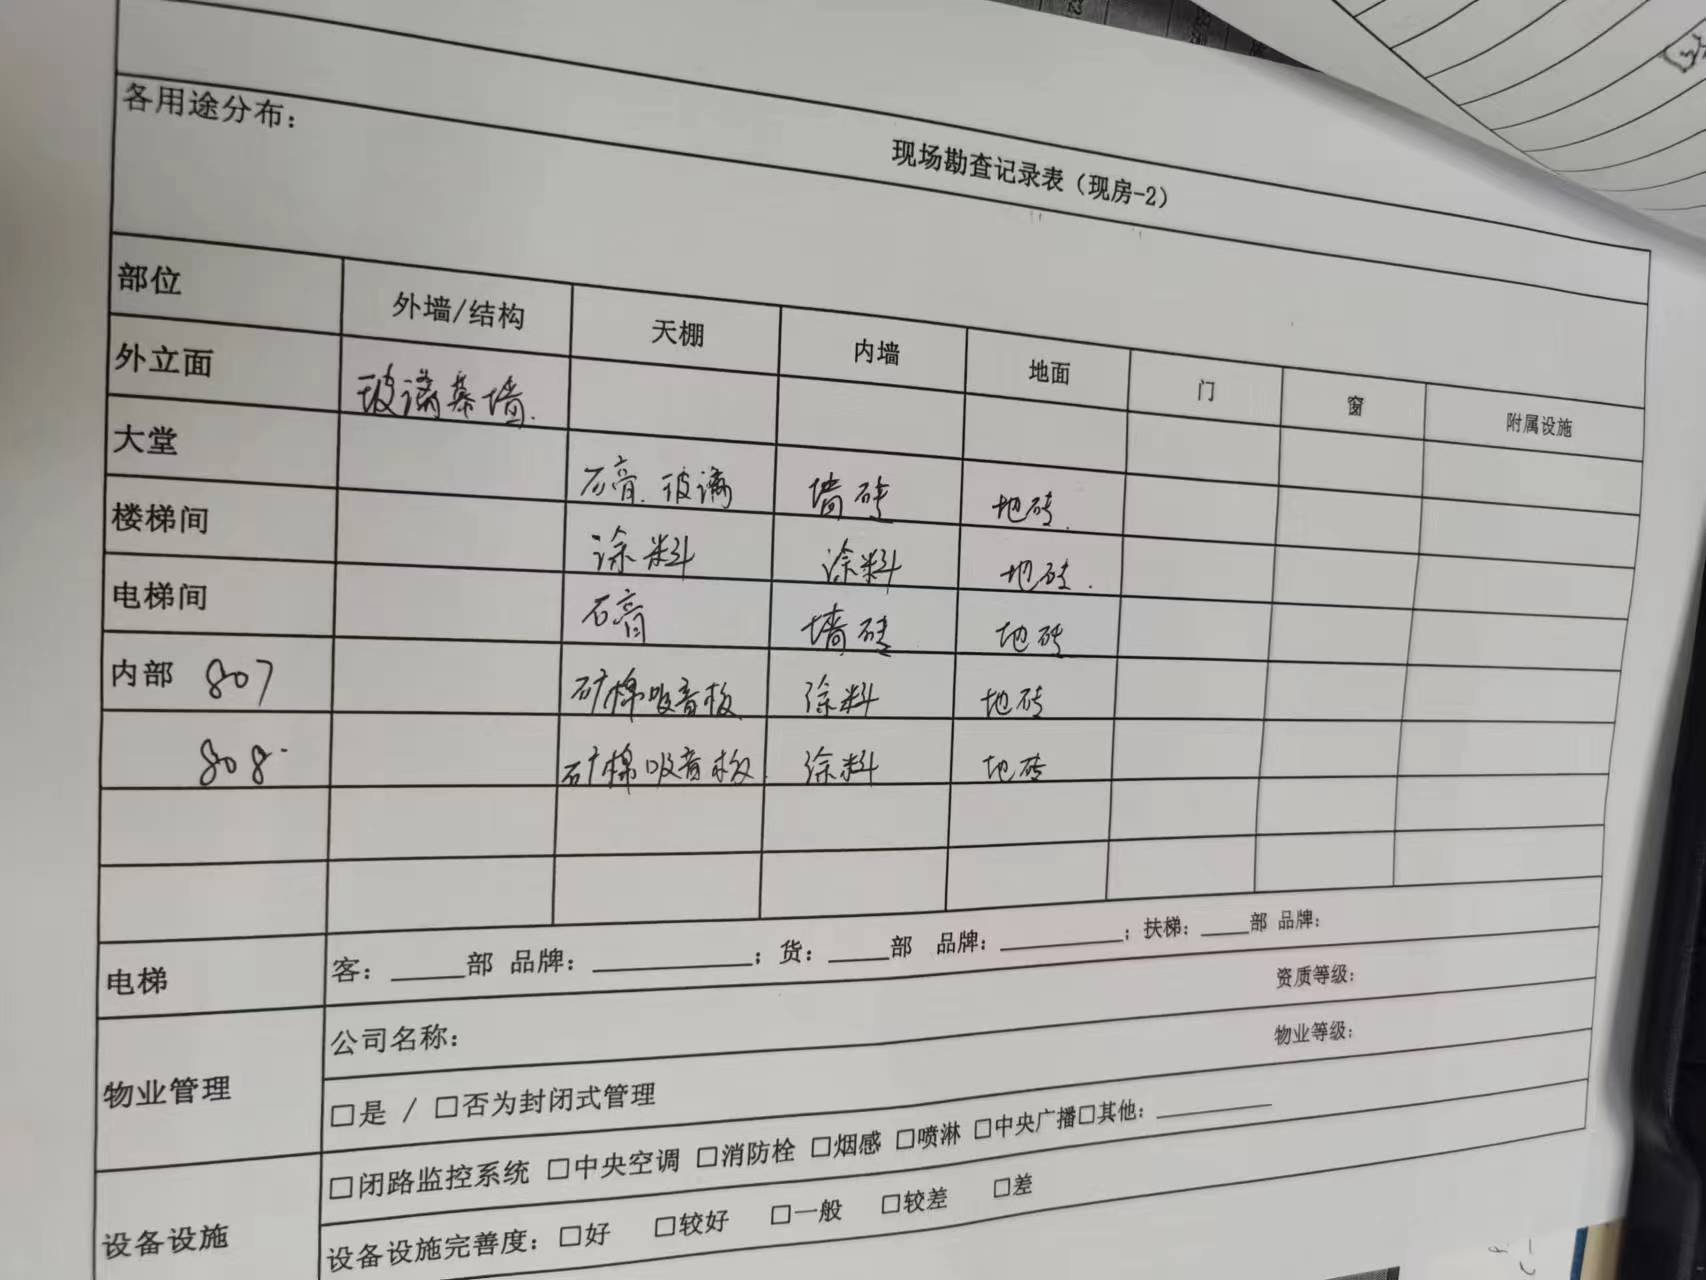 现场勘查记录表（现房-2）
各用途分布：
部位 外墙/结构 天棚 内墙 地面 门 窗 附属设施
外立面 玻璃幕墙.
大堂 石膏.玻璃 墙砖 地砖.
楼梯间 涂料 涂料 地砖.
电梯间 石膏 墙砖 地砖
内部 807 矿棉吸音板 涂料 地砖
808 矿棉吸音板 涂料 地砖
电梯 客：_____部 品牌：___________；货：____部 品牌：_________；扶梯：____部 品牌：
物业管理 公司名称： 资质等级：
□是 / □否为封闭式管理 物业等级：
设备设施 □闭路监控系统 □中央空调 □消防栓 □烟感 □喷淋 □中央广播□其他：_________
设备设施完善度：□好 □较好 □一般 □较差 □差